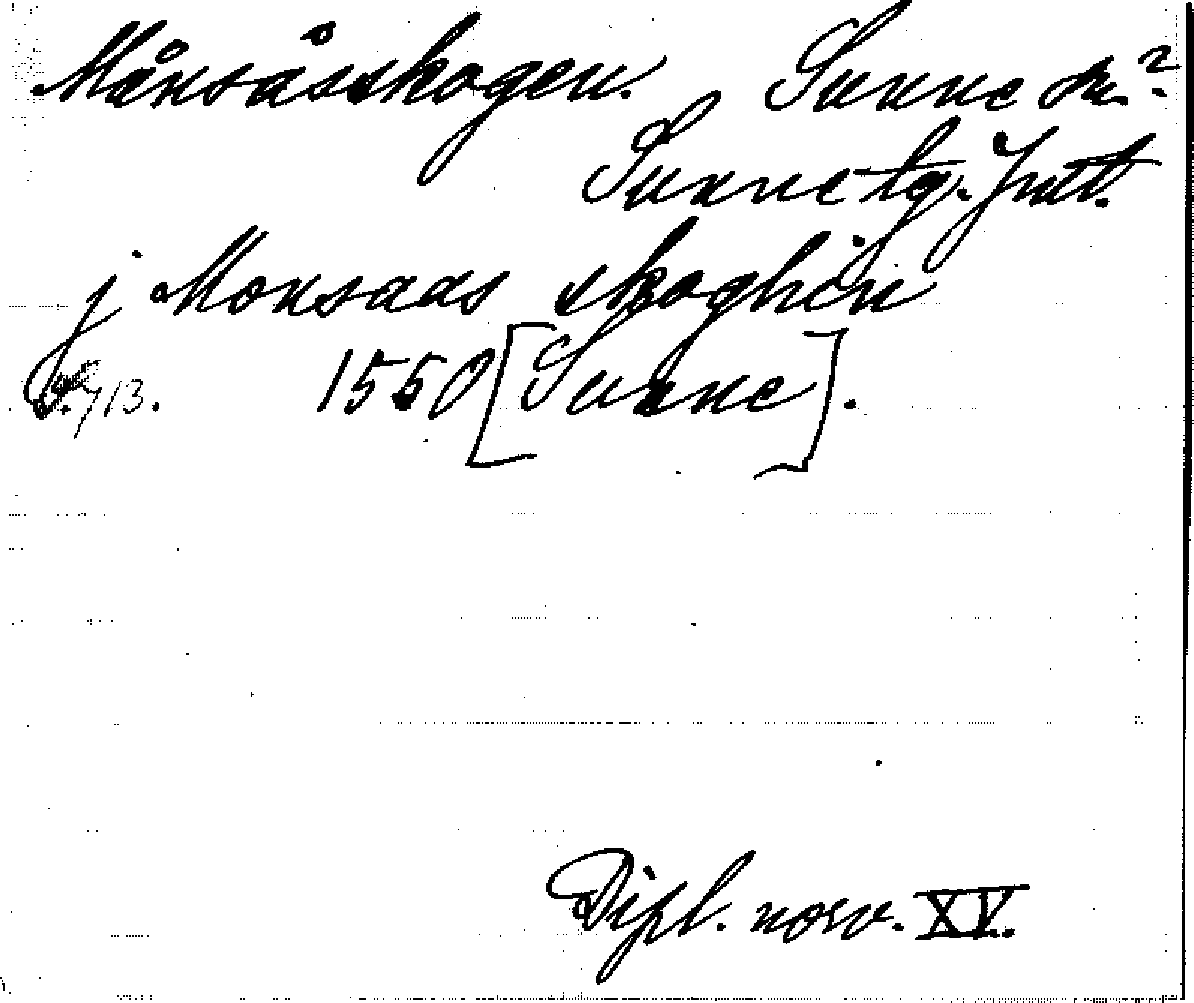 Månsåsskogen. Sunne sn.?
Sunne tg. Jmtl.
j Monsaas skoghin
S. 713. 1550 [Sunne].
Dipl. norv. XV.